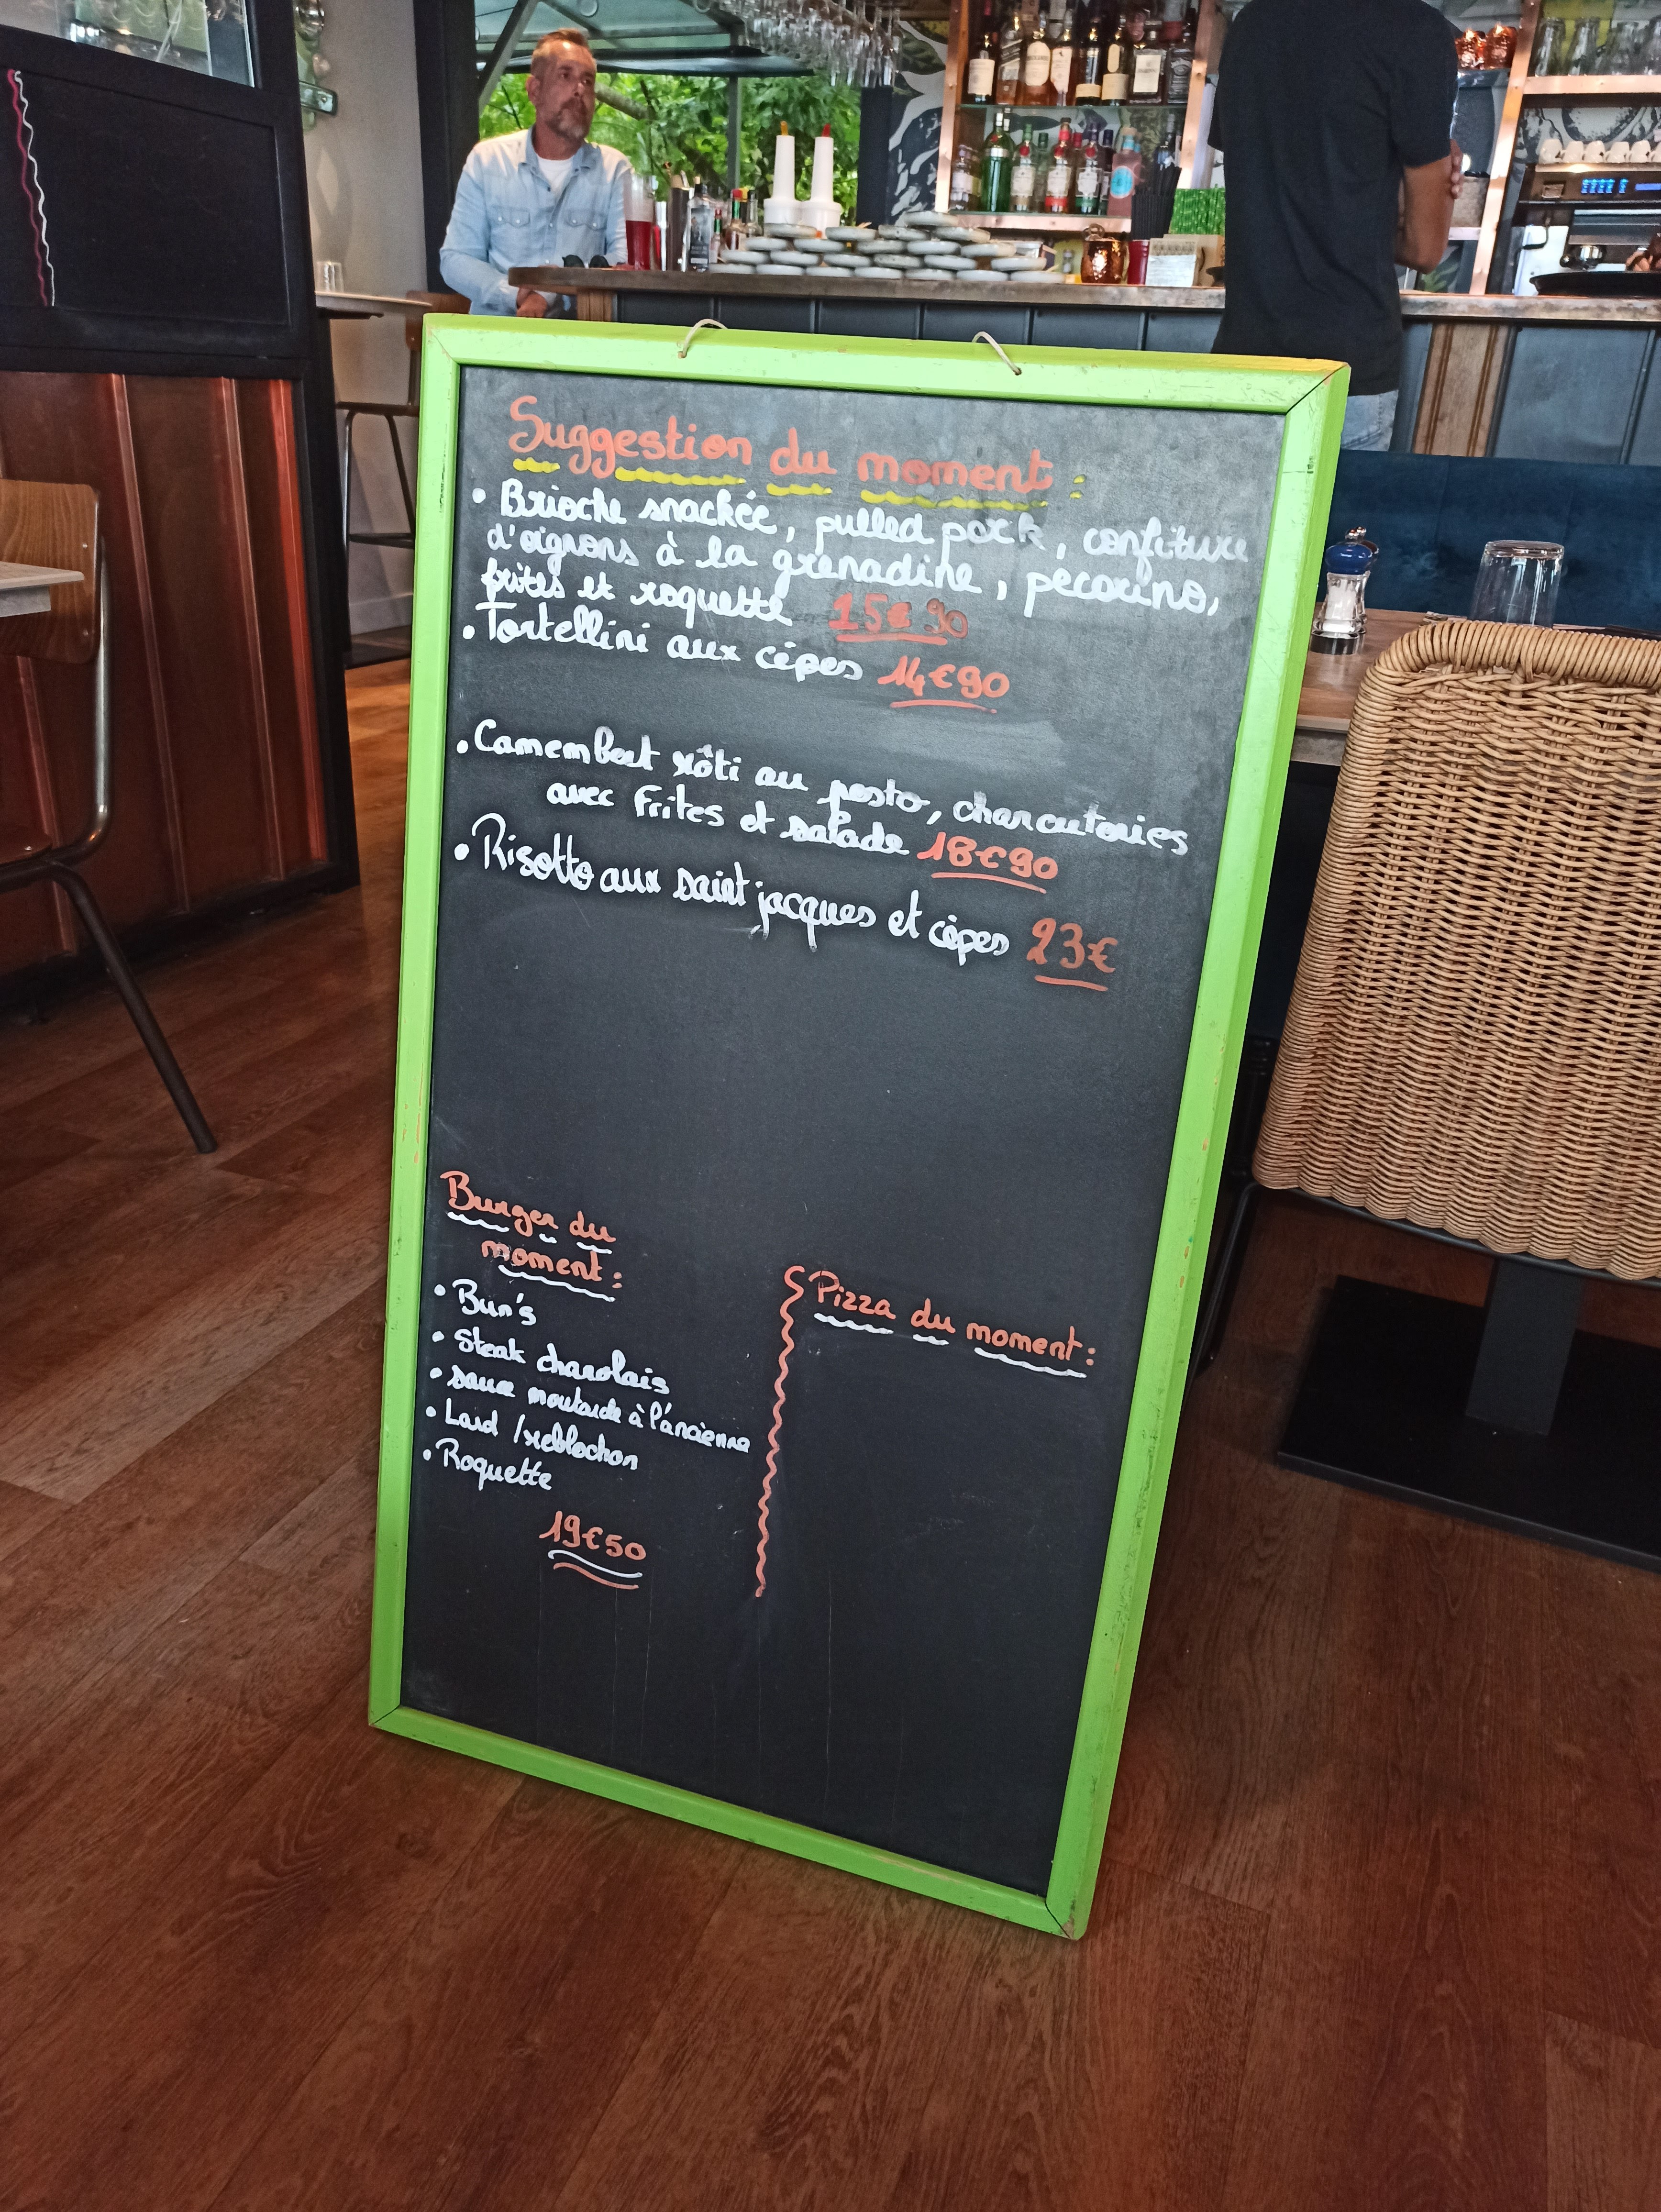 Suggestion du moment :
• Brioche snackée, pulled pork, confiture
d'oignons à la grenadine, pecorino,
frites et roquette 15€90
• Tortellini aux cèpes 14€90
• Camembert rôti au pesto, charcuteries
avec frites et salade 18€90
• Risotto aux saint jacques et cèpes 23€
Burger du
moment :
• Bun's
• Steak charolais
• sauce moutarde à l'ancienne
• Lard / reblochon
• Roquette
19€50
Pizza du moment :